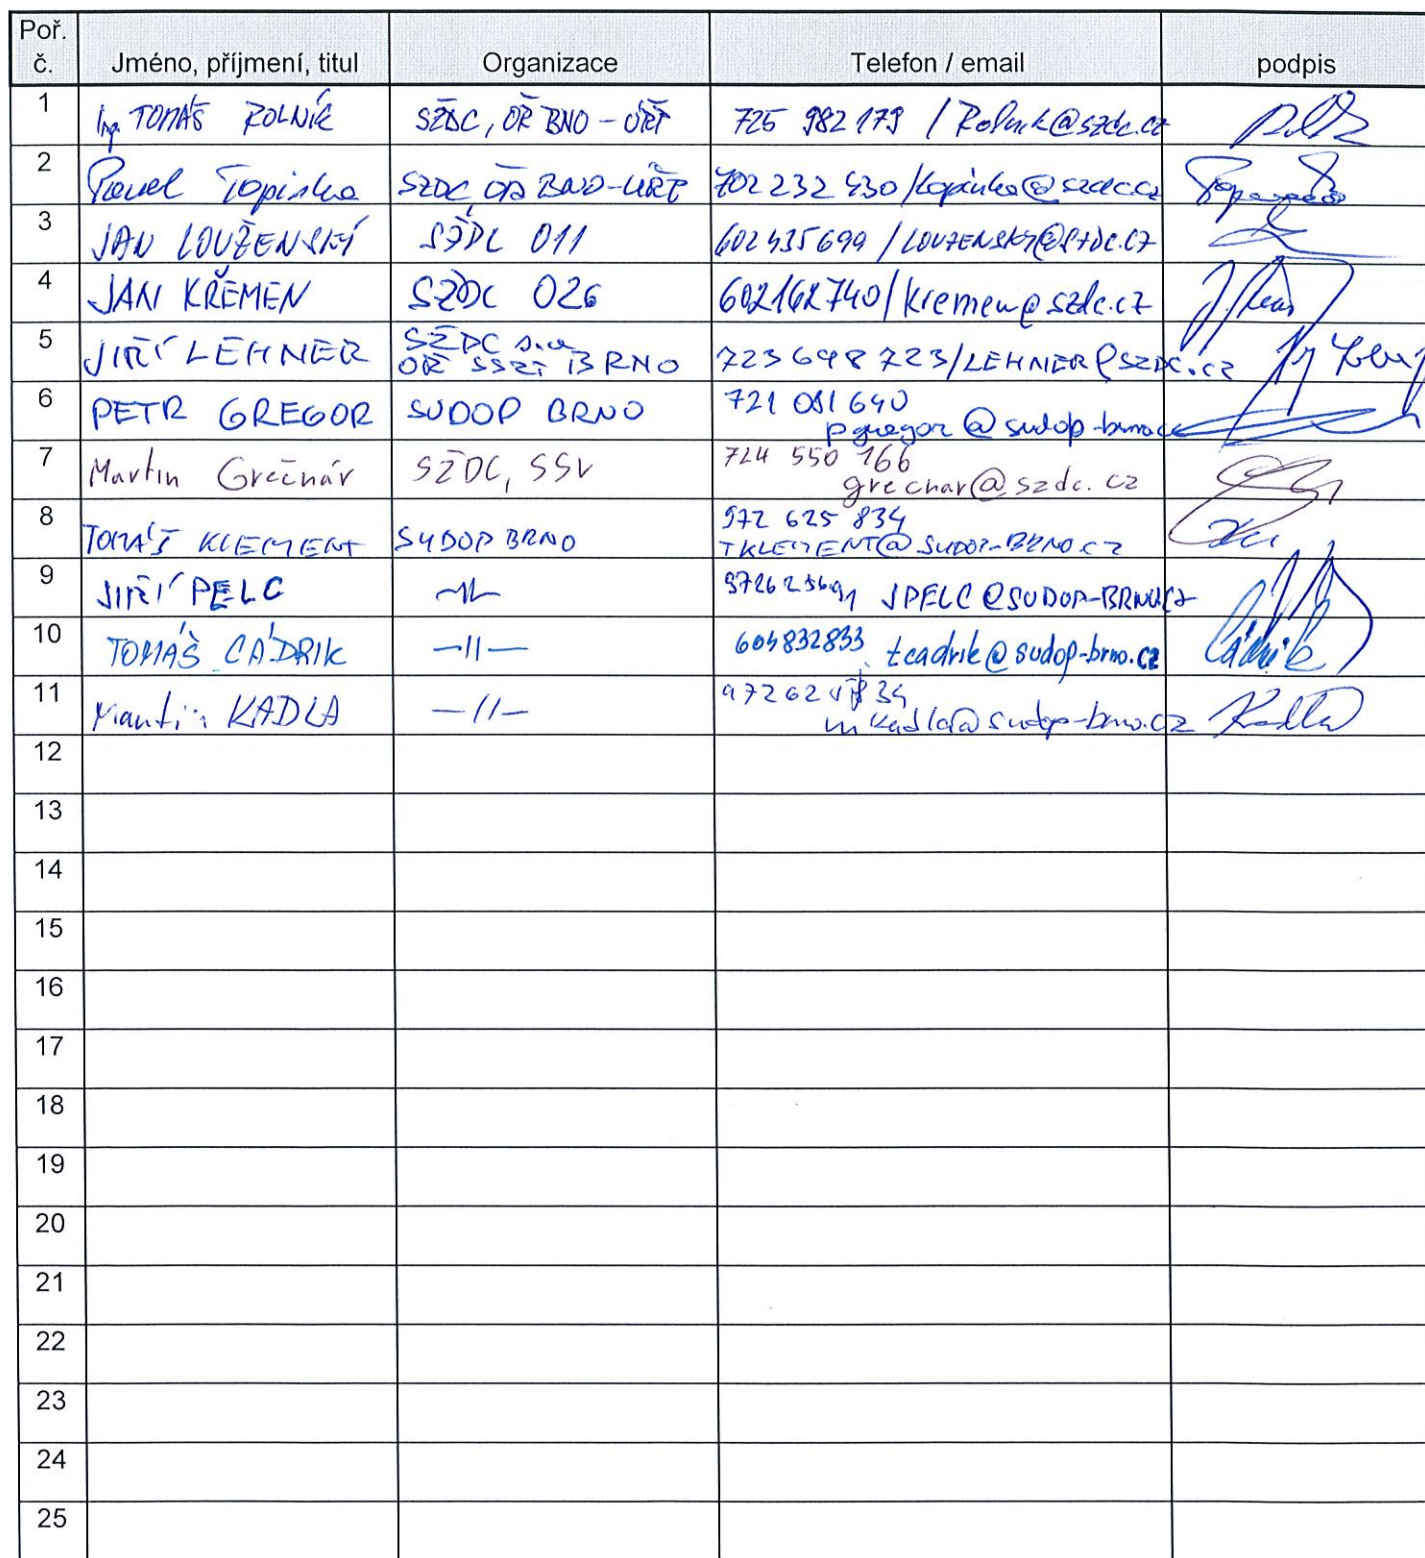 Poř. č. Jméno, příjmení, titul Organizace Telefon / email podpis
1 Ing. TOMÁŠ ROLNÍK SŽDC, OŘ BNO - ÚŘT 725 982 179 / Rolnik@szdc.cz
2 Pavel Topinka SŽDC OŘ BNO-ÚŘT 702 232 430 /topinka@szdc.cz
3 JAN LOUŽENSKÝ SŽDC 011 602435699 / LOUZENSKY@SZDC.CZ
4 JAN KŘEMEN SŽDC 026 602162740/kremen@szdc.cz
5 JIŘÍ LEHNER SŽDC s.o. OŘ SSZT BRNO 723 698 723/LEHNER@SZDC.CZ
6 PETR GREGOR SUDOP BRNO 721 081 640
pgregor@sudop-brno.cz
7 Martin Grečnár SŽDC, SSV 724 550 166
grecnar@szdc.cz
8 TOMÁŠ KLEMENT SUDOP BRNO 972 625 834
TKLEMENT@SUDOP-BRNO.CZ
9 JIŘÍ PELC -||- JPELC@SUDOP-BRNO.CZ
10 TOMÁŠ CÁDRIK -||- 604832833 tcadrik@sudop-brno.cz Cádrik
11 Martin KADLA -||-
mkadla@sudop-brno.cz Kadla
12
13
14
15
16
17
18
19
20
21
22
23
24
25